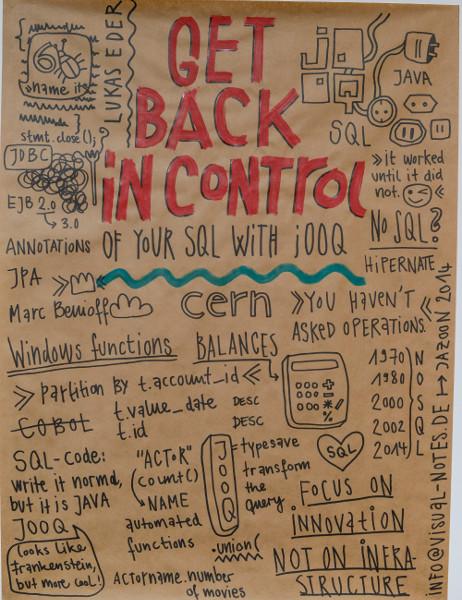 LUKAS EDER
GET
BACK
IN CONTROL
OF YOUR SQL WITH jOOQ
name it
stmt.close();
JDBC
EJB 2.0
3.0
ANNOTATIONS
JPA
Marc Benioff
jOOQ
JAVA
SQL
»it worked
until it did
not. «
No SQL?
HiPERNATE
cern
»YOU HAVEN'T «
ASKED OPERATIONS.
Windows functions
BALANCES
» partition BY t.account_id «
t.value_date DESC
t.id DESC
COBOL
1970
1980
2000
2002
2014
NOSQL
SQL
SQL-code:
write it normal,
but it is JAVA
JOOQ
looks like
frankenstein,
but more cool!
"ACTOR"
(count()
NAME
automated
functions
ACTORname.number
of movies
JOOQ
= typesave
transform
the
query
.union(
FOCUS ON
INNOVATION
NOT ON INFRA-
STRUCTURE
INFO@VISUAL-NOTES.DE JAZOON 2014